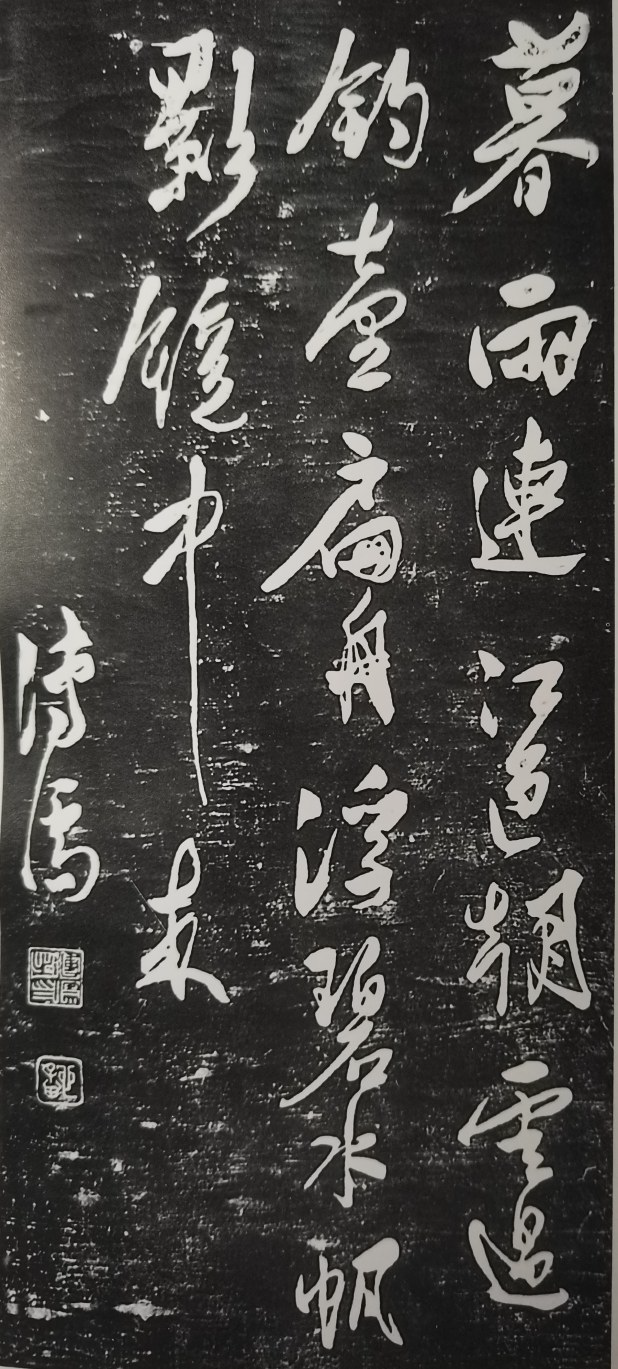 暮雨連江邊朝雲過
釣臺扁舟浮碧水帆
影鏡中來